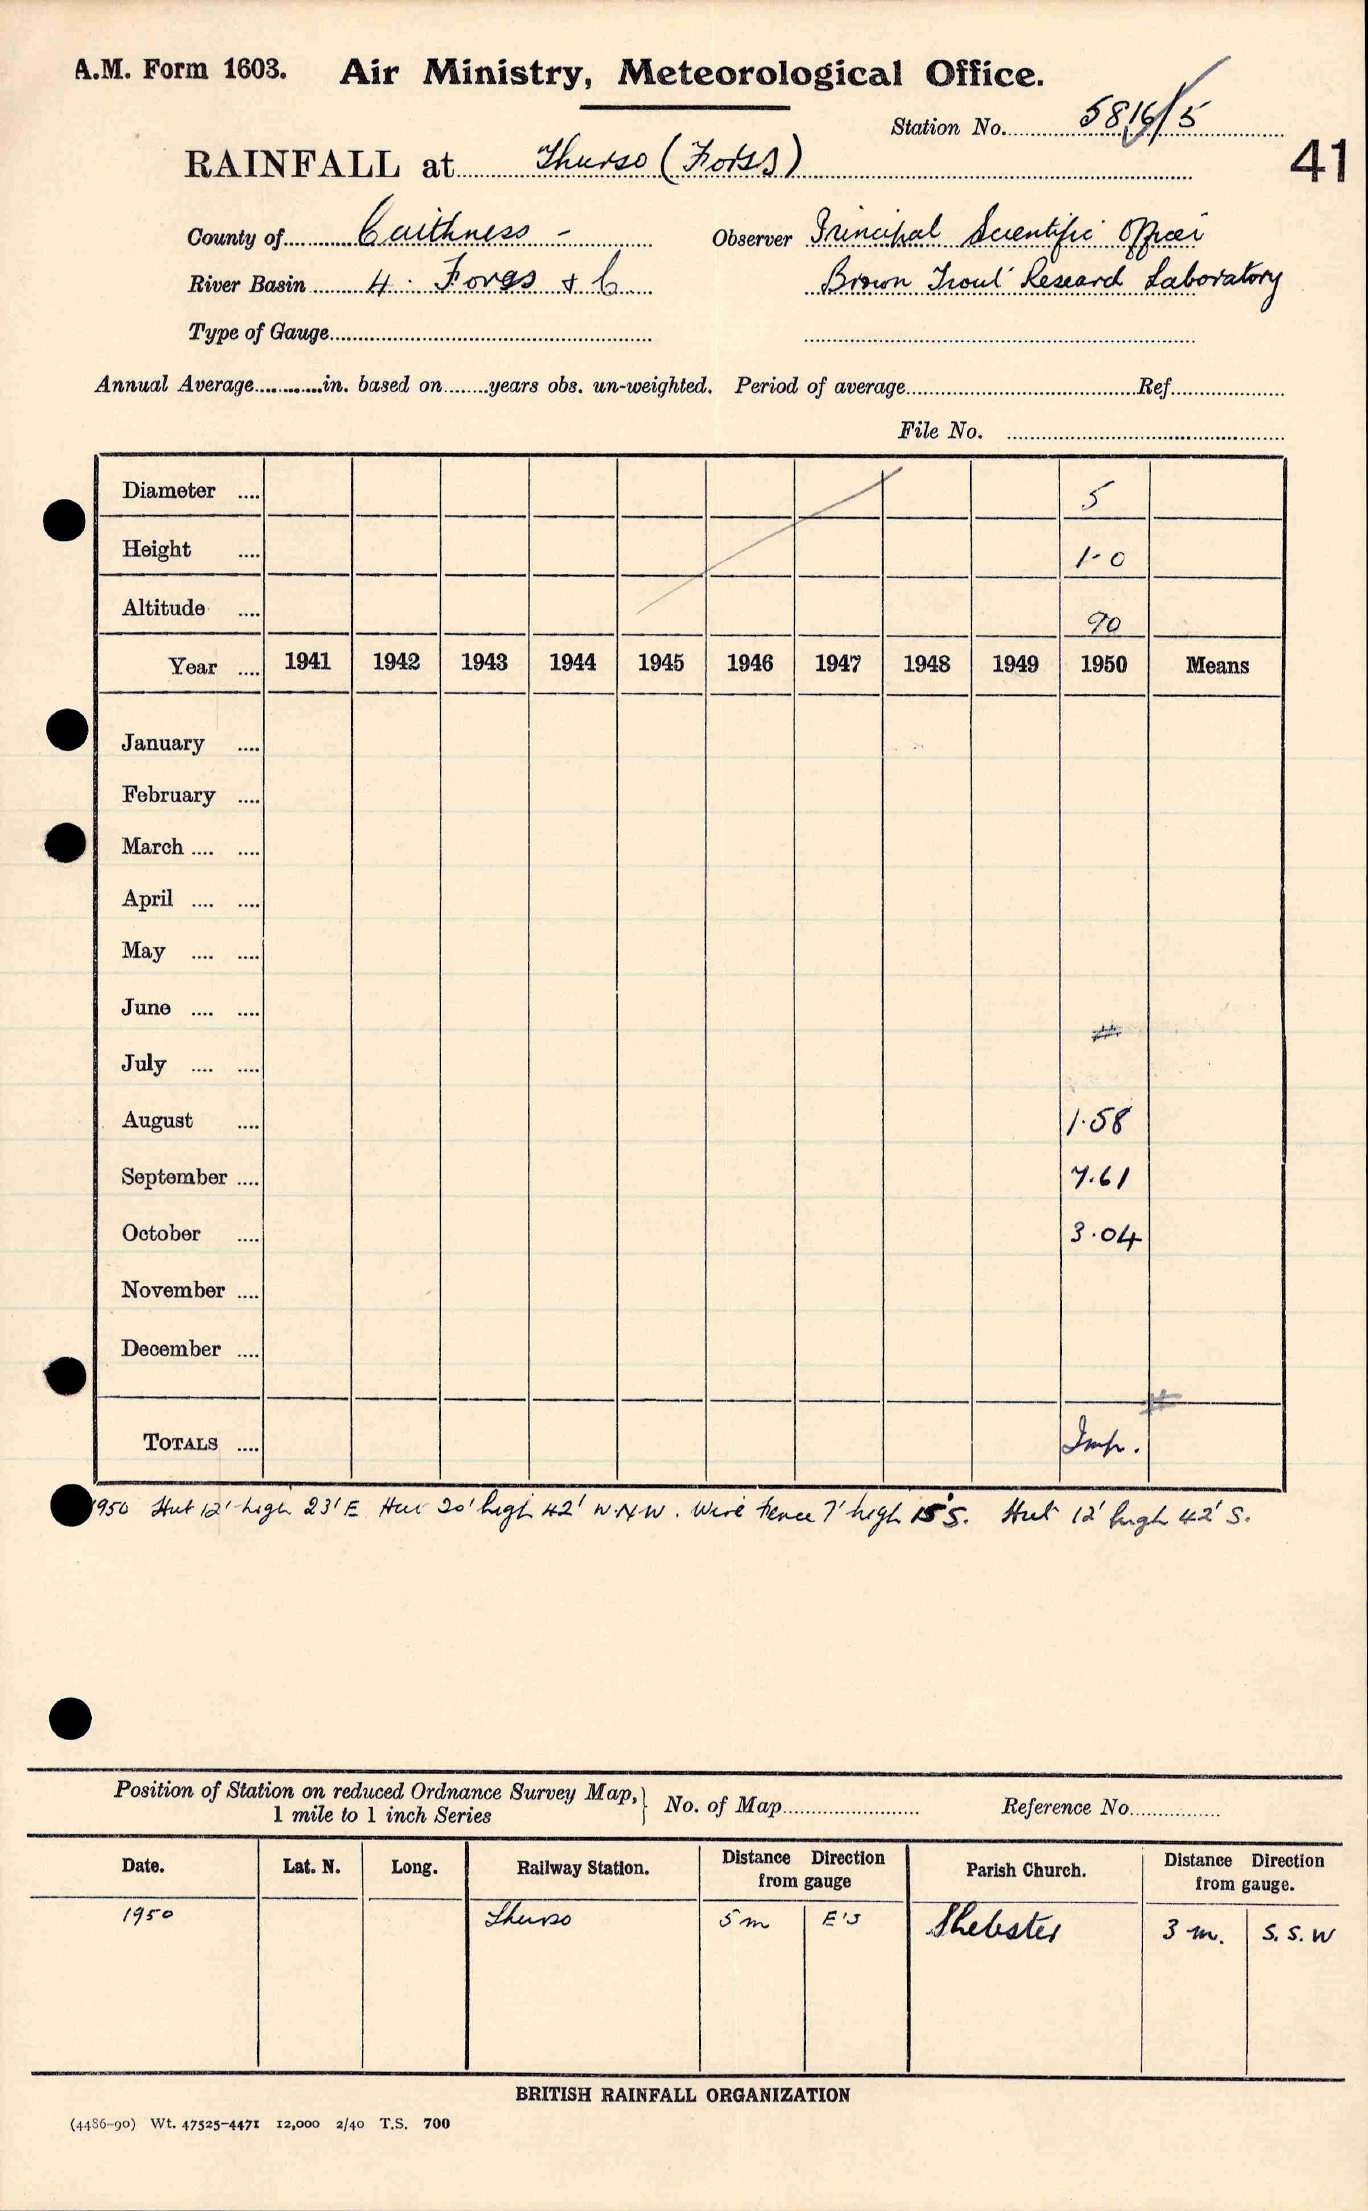 A.M. Form 1603. Air Ministry, Meteorological Office.
Station No. 5816/5
41
RAINFALL at Thurso (Forss)
County of Caithness - Observer Principal Scientific Officer
River Basin 4. Forss & C Brown Trout Research Laboratory
Type of Gauge
Annual Average in. based on years obs. un-weighted. Period of average Ref.
File No.
Diameter .... 5
Height .... 1-0
Altitude .... 90
Year .... 1941 1942 1943 1944 1945 1946 1947 1948 1949 1950 Means
January ....
February ....
March .... ....
April .... ....
May .... ....
June .... ....
July .... ....
August .... 1.58
September .... 7.61
October .... 3.04
November ....
December ....
TOTALS .... Imp.
1950 Hut 12' high 23' E Hut 20' high 42' W.N.W. Wire Fence 7' high 15' S. Hut 12' high 42' S.
Position of Station on reduced Ordnance Survey Map, 1 mile to 1 inch Series } No. of Map Reference No.
Date. Lat. N. Long. Railway Station. Distance Direction from gauge Parish Church. Distance Direction from gauge.
1950 Thurso 5 m E'S Shebster 3 m. S.S.W
BRITISH RAINFALL ORGANIZATION
(4486-90) Wt. 47525-4471 12,000 2/40 T.S. 700